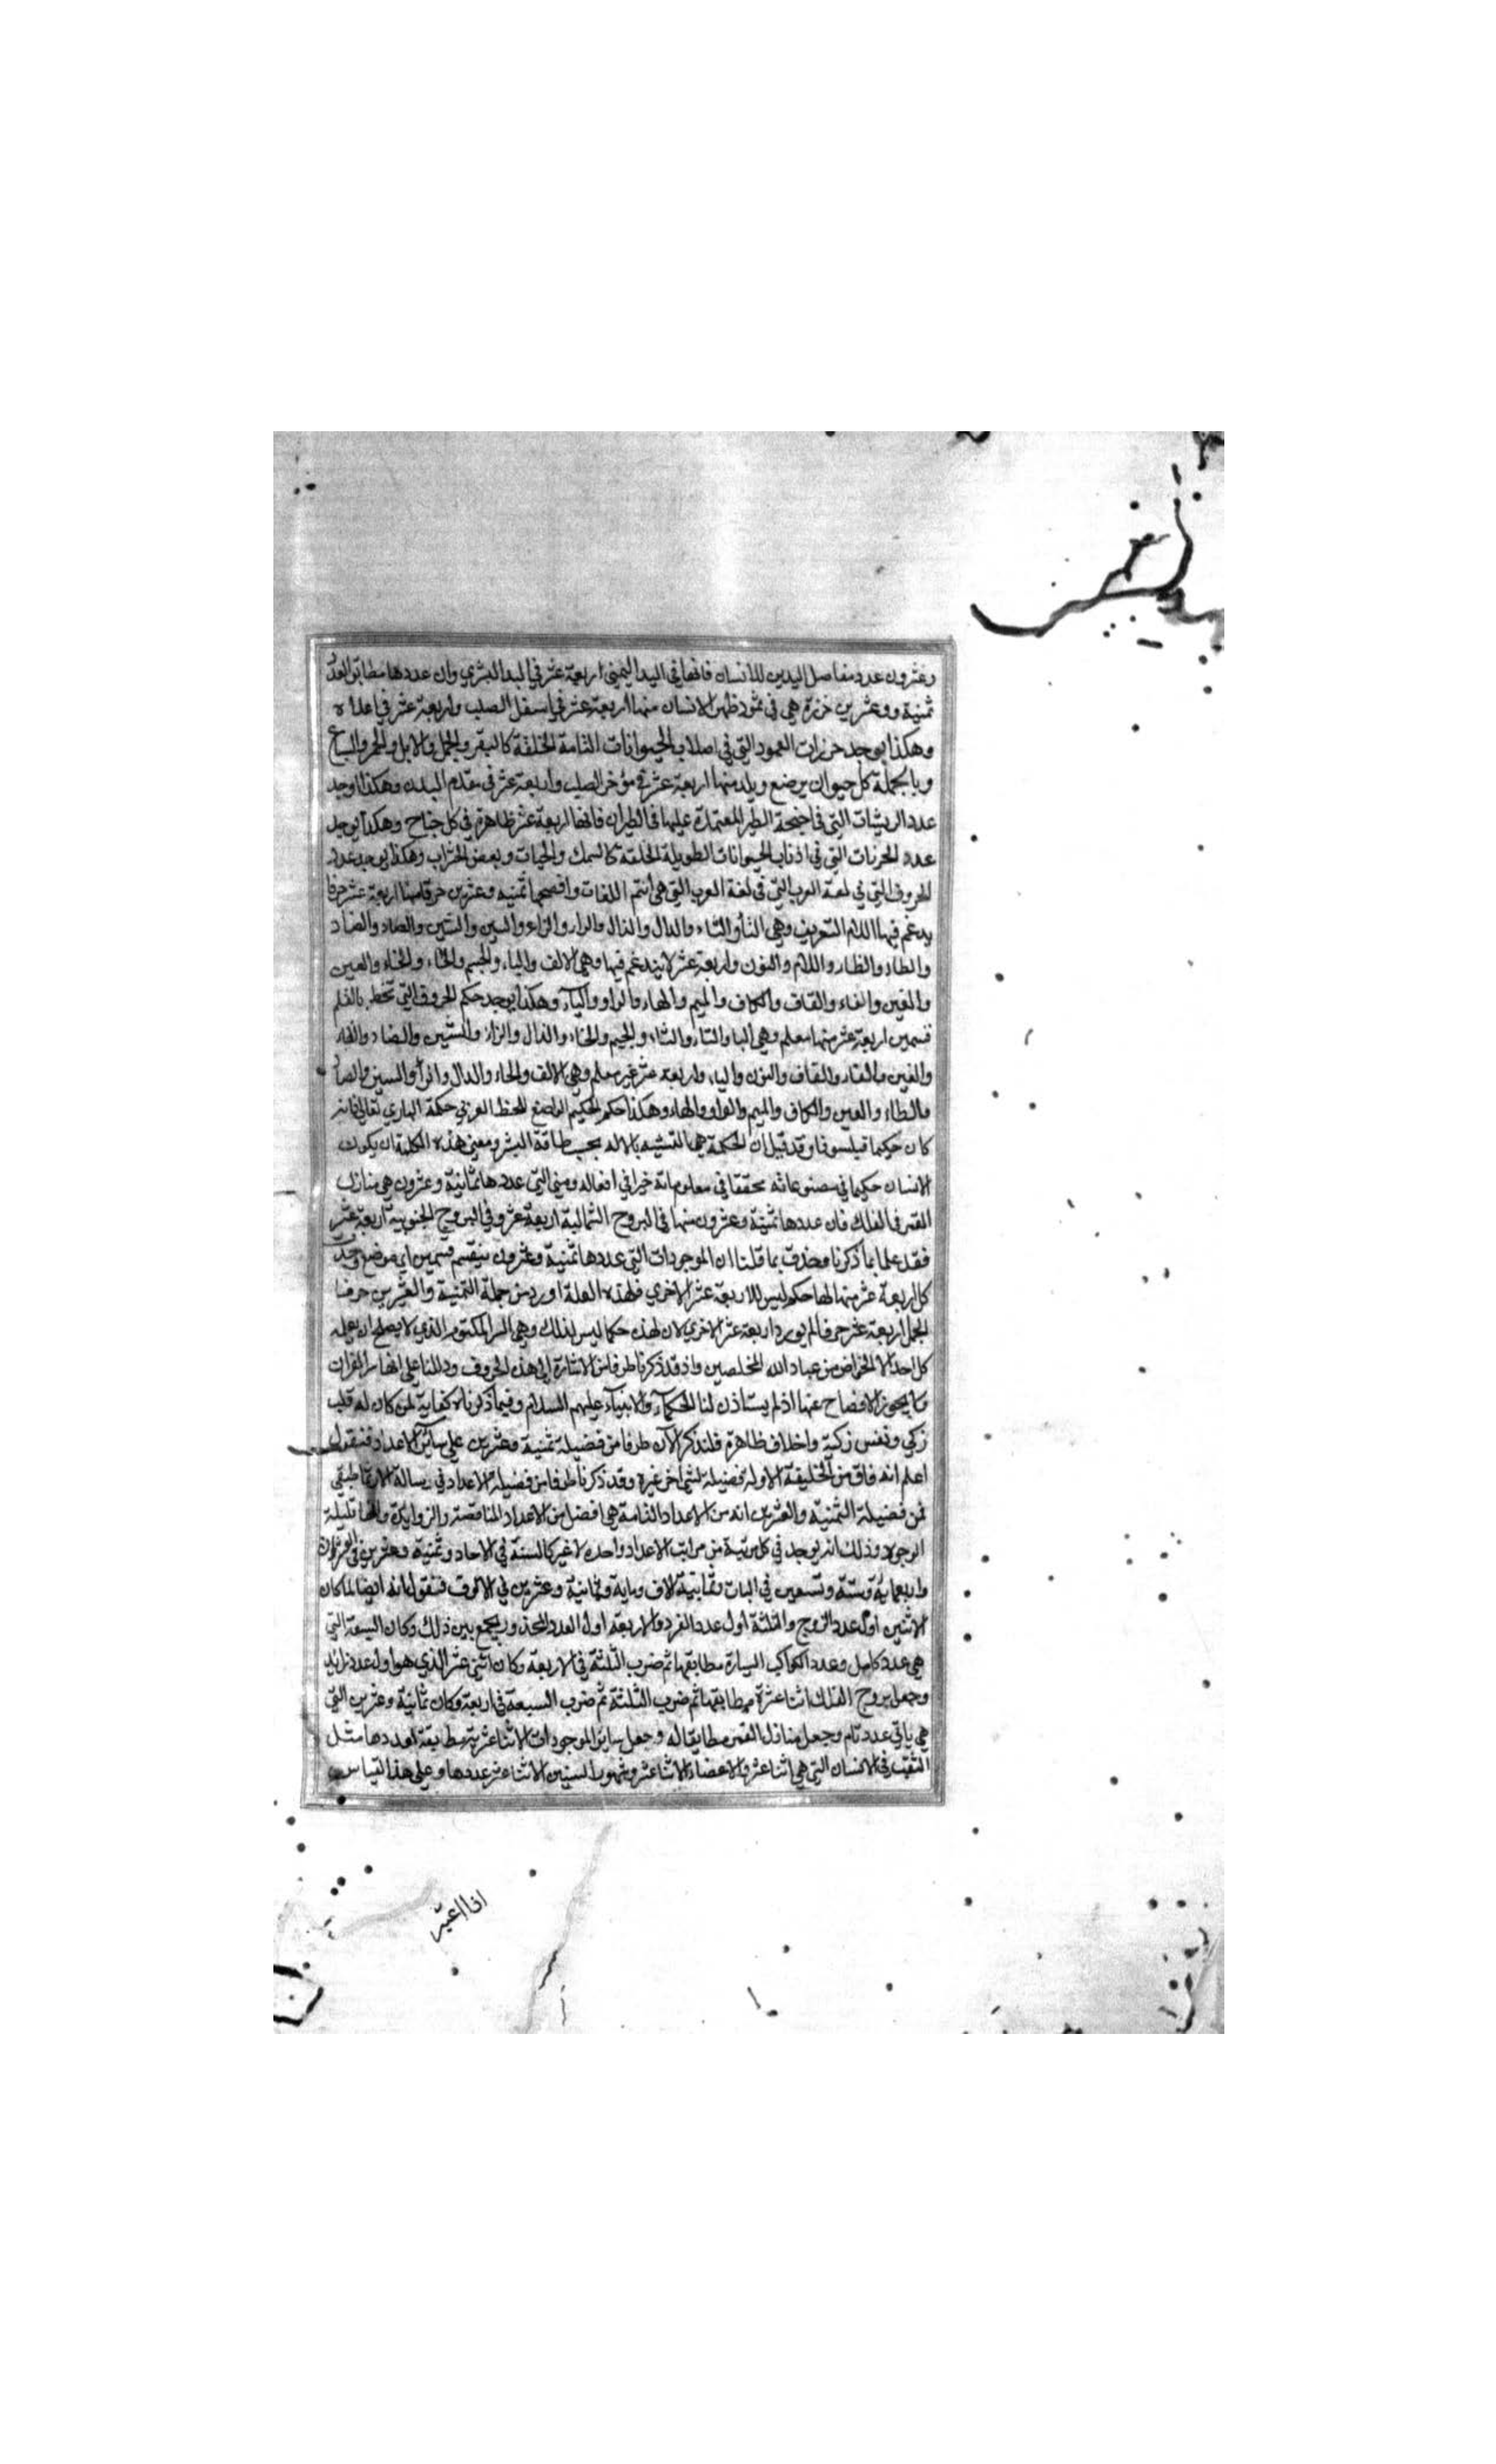 وعشرون عدد مفاصل اليدين للانسان فانها في اليد اليمنى اربعة عشر في اليد اليسري وان عددها مطابق لعدد
ثمنية وعشرين خرزة هي في عمود ظهر الانسان منها اربعة عشر في اسفل الصلب واربعة عشر في اعلاه
وهكذا يوجد خرزات العمود التي في اصلاب الحيوانات التامة الخلقة كالبقر والجمل والابل والحمر والسباع
وبالجملة كل حيوان يرضع ويلد منها اربعة عشر في مؤخر الصلب واربعة عشر في مقدم البدن وهكذا اوجد
عدد الريشات التي في اجنحة الطير المعتمدة عليها في الطيران فانها اربعة عشر ظاهرة في كل جناح وهكذا يوجد
عدد الخرزات التي في اذناب الحيوانات الطويلة الخلقة كالسمك والحيات وبعض الحشرات وهكذا يوجد عدد
الحروف التي في لغة العرب التي في لغة العرب التي هي أتم اللغات وافصحها ثمنيه وعشرين حرفا منها اربعة عشر حرفا
يدغم فيها اللام التعريف وهي التأ والثاء والدال والذال والراء والزاء والسين والشين والصاد والضاد
والطاء والظاء واللام والنون واربعة عشر لا يندغم فيها وهي الالف والباء والجيم والحاء والخاء والعين
والغين والفاء والقاف والكاف والميم والهاء والواو واليآء وهكذا يوجد حكم الحروف التي تخط بالقلم
قسمين اربعة عشر منها معلم وهي البا والتاء والثاء والجيم والخاء والذال والزاء والشين والضاد والظاء
والغين والفاء والقاف والنون والياء واربعة عشر غير معلم وهي الالف والحاء والدال والرأ والسين والصاد
والطاء والعين والكاف والميم والواو والهاء وهكذا حكم الحكيم الواضع للخط العربي حكمة الباري تعالى فانه
كان حكيما فيلسوفا وقد قيل ان الحكمة هي التشبه بالاله بحسب طاقة البشر ومعنى هذه الكلمة ان يكون
الانسان حكيما في مصنوعاته محققا في معلوماته خيرا في افعاله ومنى التي عددها ثمانية وعشرون هي منازل
القمر في الفلك فان عددها ثمنية وعشرون منها في البروج الشمالية اربعة عشر وفي البروج الجنوبية اربعة عشر
فقد علما بما ذكرنا بما قلنا ان الموجودات التي عددها ثمنية وعشرون ينقسم قسمين اي موضع وجد
كل اربعة عشر منها لها حكم ليس للاربعة عشر الاخري فلهذه العلة اورد من جملة الثمنية والعشرين حرفا
الجمل اربعة عشر حرفا لم يورد اربعة عشر الاخري لان لهذه حكما ليس لذلك وهي السر المكتوم الذي لا يصلح ان يعلمه
كل احد الا الخواص من عباد الله المخلصين واذ قد ذكرنا طرفا من الاشارة الى هذه الحروف ودللنا على انها سر القران
لا يجوز الافصاح عنها اذ لم يستاذن لنا الحكمآء والانبيآء عليهم السلام وفيما ذكرناه كفاية لمن كان له قلب
زكي ونفس زكية واخلاف ظاهرة فلنذكر الآن طرفا من فضيلة ثمنية وعشرين علي سائر الاعداد فنقول
اعلم انه فاق من الخليقة الاوله فضيلة لشئ اخر غيره وقد ذكرنا طرفا من فضيلة الاعداد في رسالة الارثماطيقي
فمن فضيلة الثمنية والعشرين انه من الاعداد التامة هي افضل من الاعداد الناقصة والزوايدة وانها قليلة
الوجود وذلك انه يوجد في كل مرتبة من مراتب الاعداد واحده لا غير كالستة في الاحاد وثمنية وعشرين في العشرات
واربعماية وستة وتسعين في الميات وثمانية الاف وماية وثمانية وعشرين في الالوف فنقول انه ايضا لما كان
الاثنين اول عدد الزوج والثلثة اول عدد الفرد والاربعة اول العدد المجذور يجمع بين ذلك وكان السبعة التي
هي عدد كامل وعدد الكواكب السيارة مطابقها ثم ضرب الثلثة في الاربعة وكان اثني عشر الذي هو اول عدد زايد
وجعل بروج الفلك اثنا عشرة مطابقها ثم ضرب الثلثة ثم ضرب السبعة في اربعة وكان ثمانية وعشرين التي
هي ياتي عدد تام وجعل منازل القمر مطابقا له وجعل ساير الموجودات الاثنا عشرية مطابقة لعددها مثل
الثقب في الانسان التي هي اثنا عشر والاعضاء الاثنا عشر وشهور السنين الاثنا عشر عددها وعلى هذا القياس